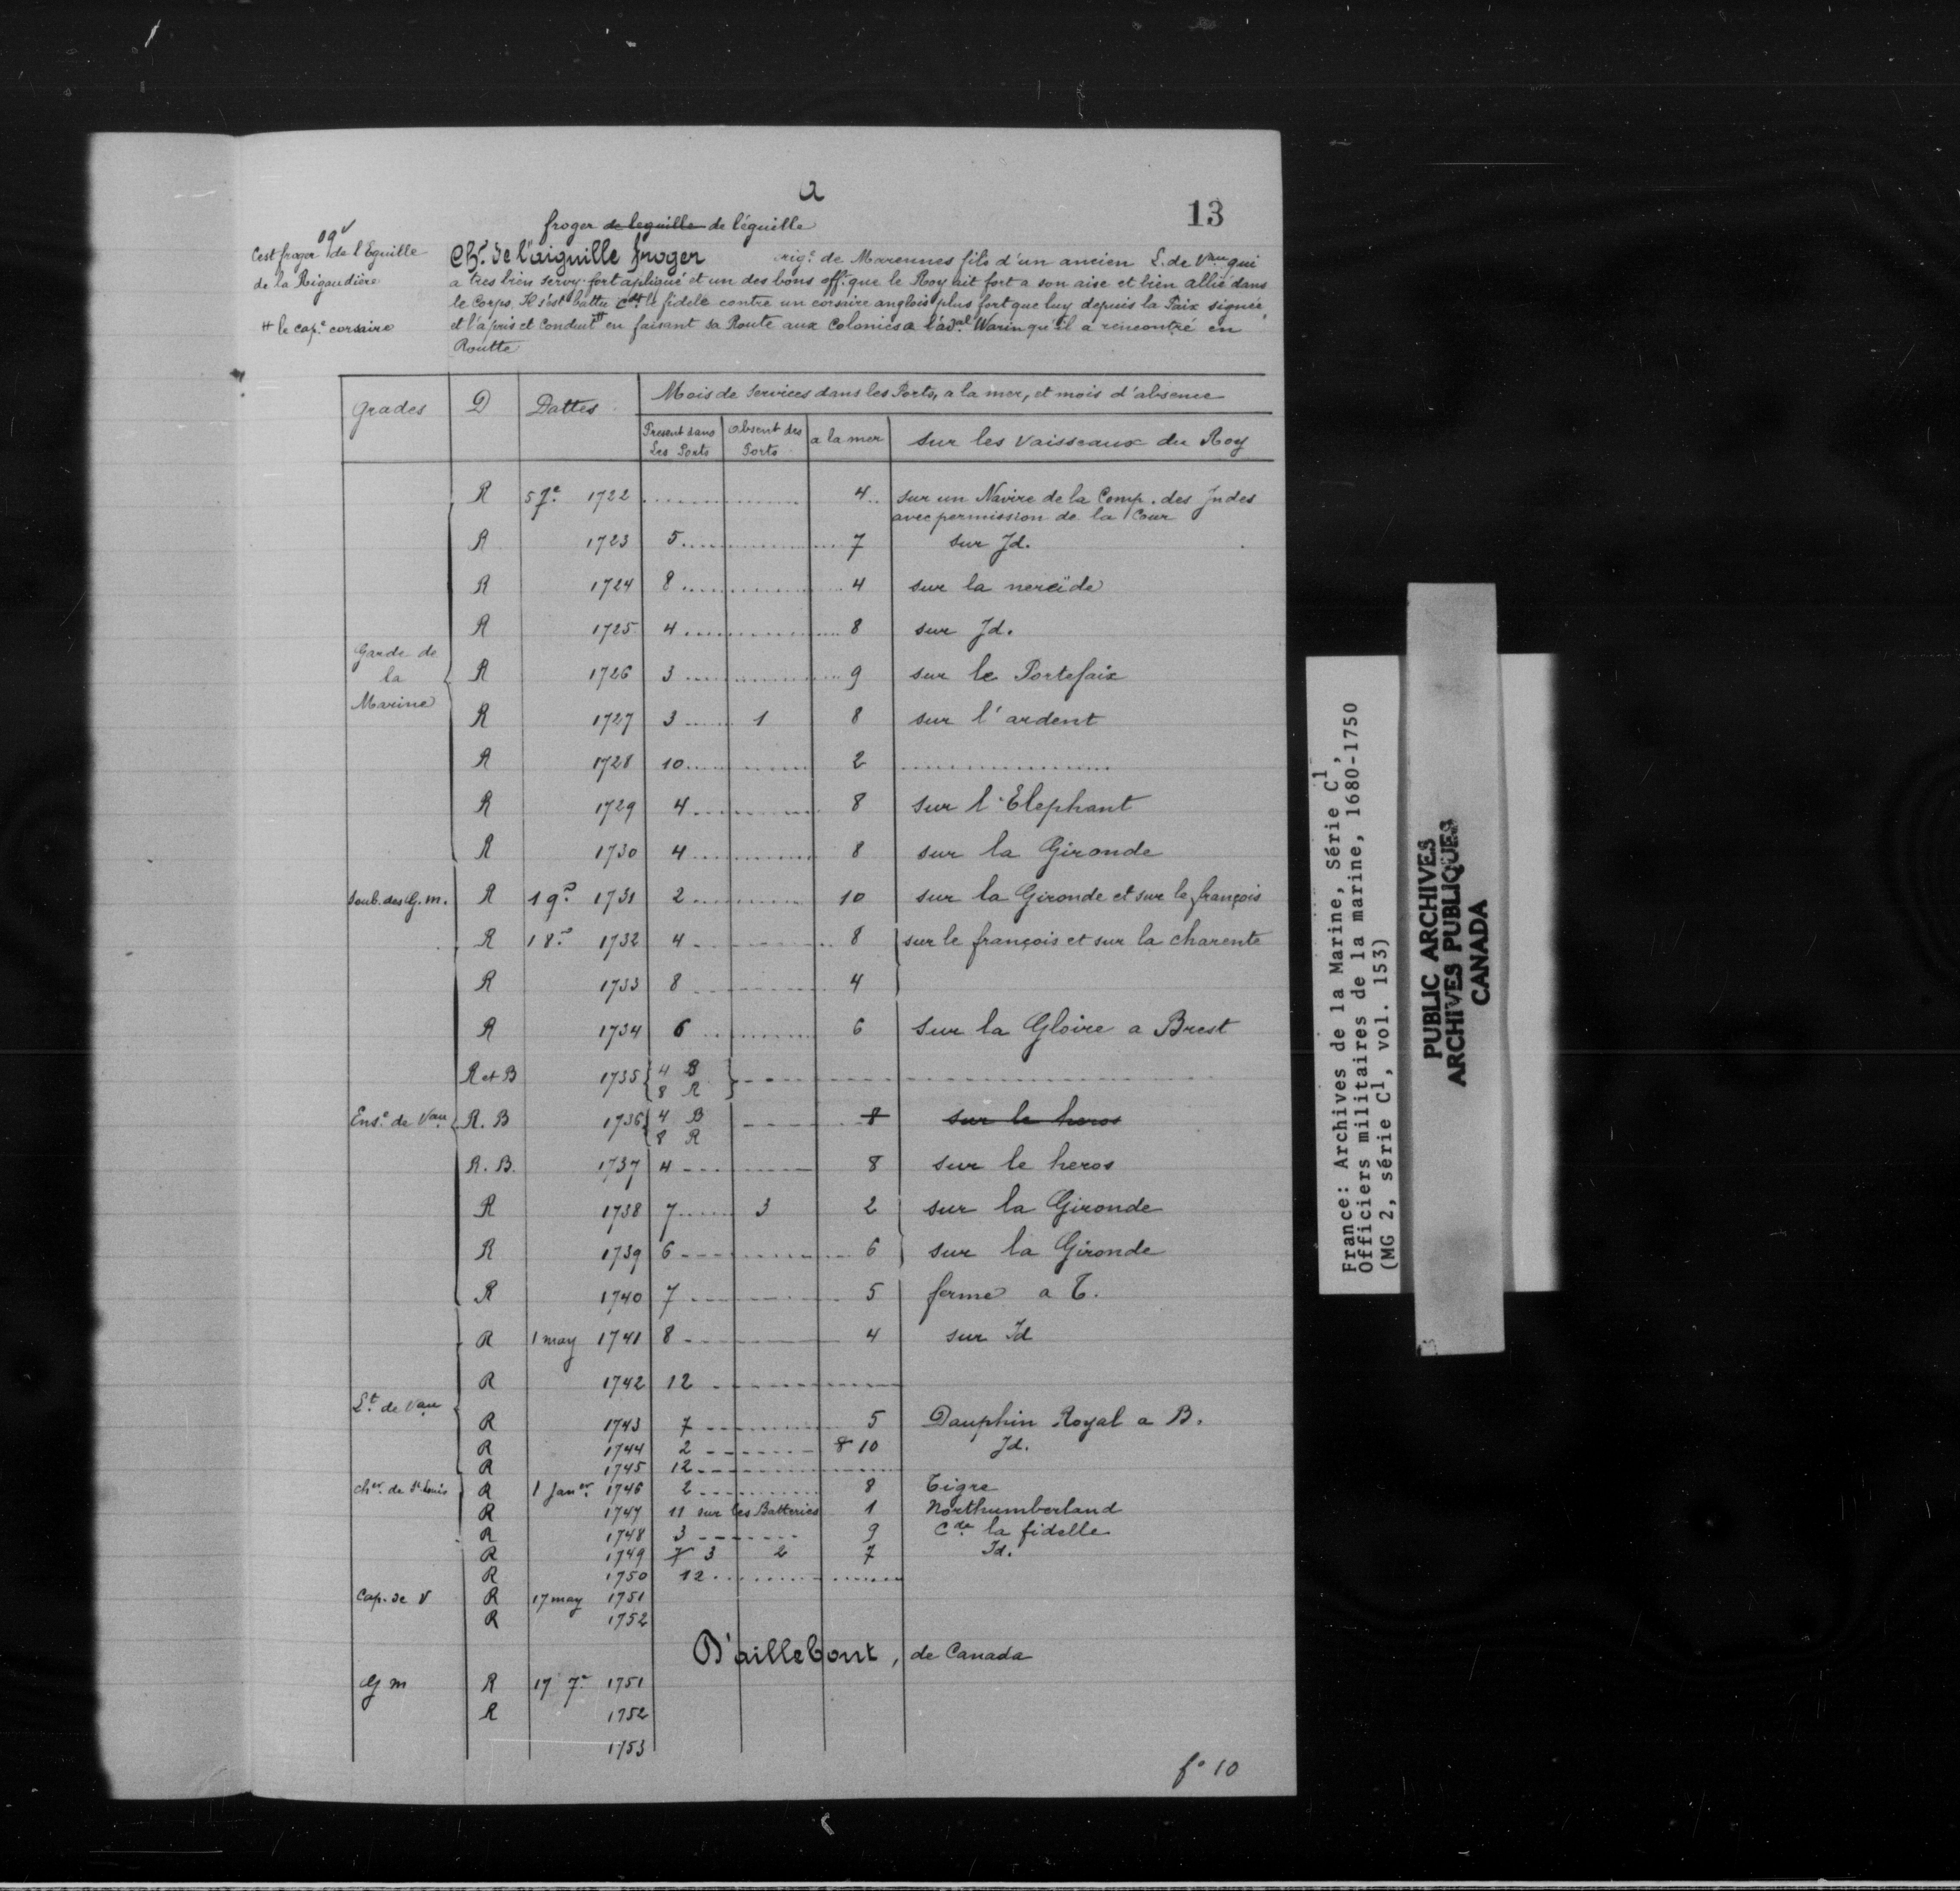 a
13
froger de leguille de léguille
Cest froger de l'Eguille
de la Rigaudière
# le cap.e corsaire
Ch.r de l'aiguille froger orig.e de Marennes fils d'un ancien L. de Vau qui
a tres bien servy. fort apliqué et un des bons off. que le Roy ait fort a son aise et bien allié dans
le Corps. Il s'est battu Cdt le fidele contre un corsaire anglois plus fort que luy depuis la Paix signée
et l'a pris et Conduit # en faisant sa Route aux Colonies a l'ad.al Warin qu'il a rencontré en
Routte
Mois de Services dans les Ports, a la mer, et mois d'absence
Grades D Dattes Present dans Les Ports absent des Ports a la mer sur les Vaisseaux du Roy
R 5 7.e 1722 4 sur un Navire de la Comp. des Jndes
avec permission de la Cour
R 1723 5 7 sur Jd.
R 1724 8 4 sur la nereïde
R 1725 4 8 sur Jd.
Garde de la Marine
R 1726 3 9 sur le Portefaix
R 1727 3 1 8 sur l'ardent
R 1728 10 2
R 1729 4 8 sur l'Elephant
R 1730 4 8 sur la Gironde
soub. des G. m. R 1 9.e 1731 2 10 sur la Gironde et sur le françois
R 1 8.e 1732 4 8 sur le françois et sur la charente
R 1733 8 4
R 1734 6 6 sur la Gloire a Brest
R et B 1735 4 B
8 R
Ens.e de Vau R. B 1736 4 B 8 sur le heros
8 R
R. B. 1737 4 8 sur le heros
R 1738 7 3 2 sur la Gironde
R 1739 6 6 sur la Gironde
R 1740 7 5 ferme a T.
R 1 may 1741 8 4 sur Id
R 1742 12
L.t de Vau
R 1743 7 5 Dauphin Royal a B.
R 1744 2 8 10 Jd.
R 1745 12
Ch.er de St Louis R 1 Jan.er 1746 2 8 Tigre
R 1747 11 sur les Batteries 1 Northumberland
R 1748 3 9 C.de la fidelle
R 1749 7 3 2 7 Id.
R 1750 12
Cap. de V R 17 may 1751
R 1752
D'aillebout, de Canada
G m R 17 7.e 1751
R 1752
1753
f° 10
France: Archives de la Marine, Série C1,
Officiers militaires de la marine, 1680-1750
(MG 2, série C1, vol. 153)
PUBLIC ARCHIVES
ARCHIVES PUBLIQUES
CANADA